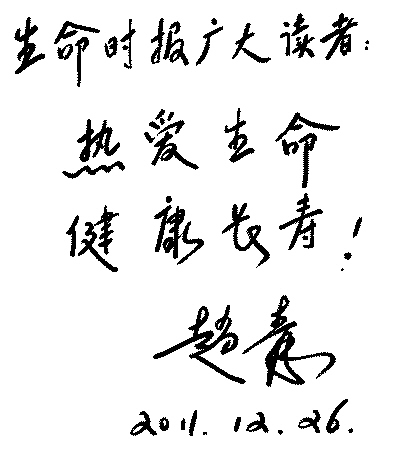 生命时报广大读者:
热爱生命
健康长寿!
赵
2011.12.26.